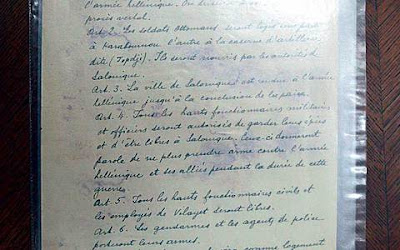 l'armée hellénique. On dressera
procès verbal.
Art 2. Les soldats Ottomans seront logés une partie
à Karabournou l'autre à la caserne d'artillerie
dite (Topdji). Ils seront nourris par les autorités de
Salonique.
Art. 3. La ville de Salonique est rendue à l'armée
hellénique jusqu'à la conclusion de la paix.
Art. 4. Tous les hauts fonctionnaires militaires
et officiers seront autorisés de garder leurs épées
et d'être libres à Salonique. Ceux-ci donneront
parole de ne plus prendre arme contre l'armée
hellénique et ses alliés pendant la durée de cette
guerre.
Art 5. Tous les hauts fonctionnaires civils et
les employés de Vilayet seront libres.
Art. 6. Les gendarmes et les agents de police
porteront leurs armes.
comme logement